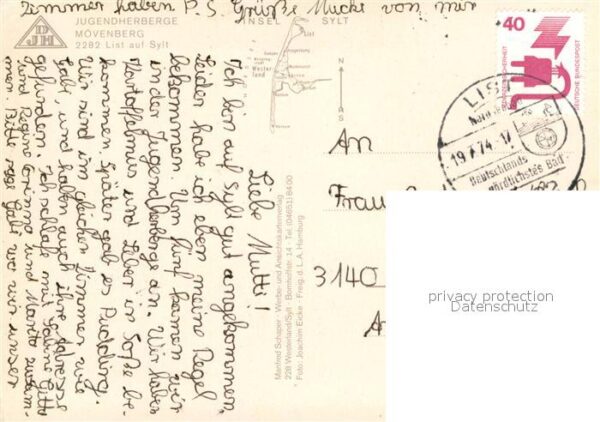 Zimmer haben P.S. Grüße Mucke von mir
JUGENDHERBERGE
MÖVENBERG
2282 List auf Sylt
DJH
INSEL SYLT
List
Westerland
N
S
40
DEUTSCHE BUNDESPOST
LIST
19.7.74-17
Deutschlands
nördlichstes Bad
Liebe Mutti!
Ich bin auf Sylt gut angekommen.
Leider hab ich eben meine Regel
bekommen. Um fünf kamen wir
in der Jugendherberge an. Wir haben
Kartoffelmus und Leber in Soße be-
kommen. Später gab es Pudding.
Wir sind im gleichen Zimmer wie
Gabi und haben auch ihre Adresse
gefunden. Ich schlafe mit Sabine, Gitti
und Regine, und zusam-
men. Bitte sage Gabi wo wir unser
Manfred Schaper · Werbe- und Ansichtskartenverlag
228 Westerland/Sylt · Bomhoffstr. 14 · Tel. (04651) 84 00
Foto: Joachim Eicke · Freig. d. L.A. Hamburg
An
Frau
3140
privacy protection
Datenschutz